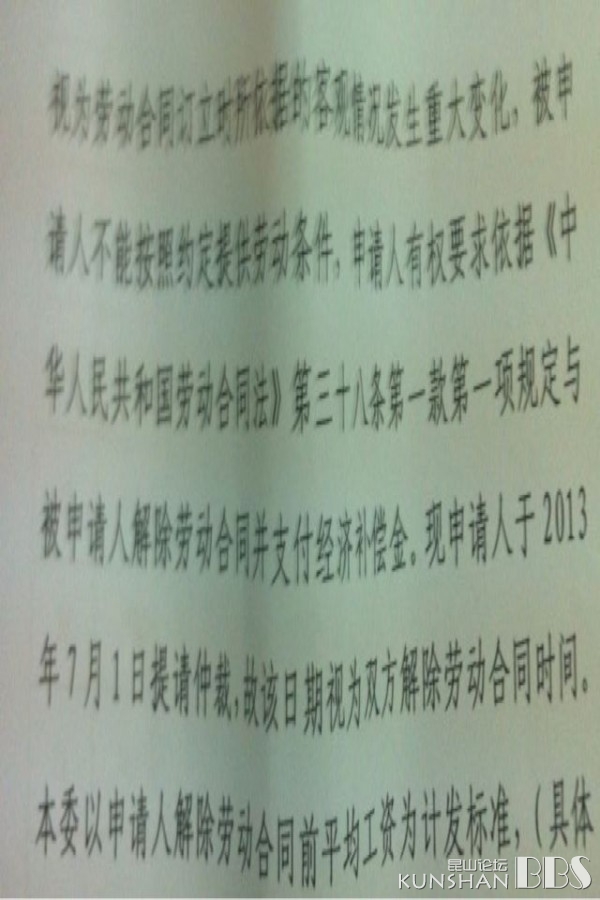 视为劳动合同订立时所依据的客观情况发生重大变化，被申
请人不能按照约定提供劳动条件，申请人有权要求依据《中
华人民共和国劳动合同法》第三十八条第一款第一项规定与
被申请人解除劳动合同并支付经济补偿金。现申请人于2013
年7月1日提请仲裁，故该日期视为双方解除劳动合同时间。
本委以申请人解除劳动合同前平均工资为计发标准，（具体
昆山论坛
KUNSHAN BBS